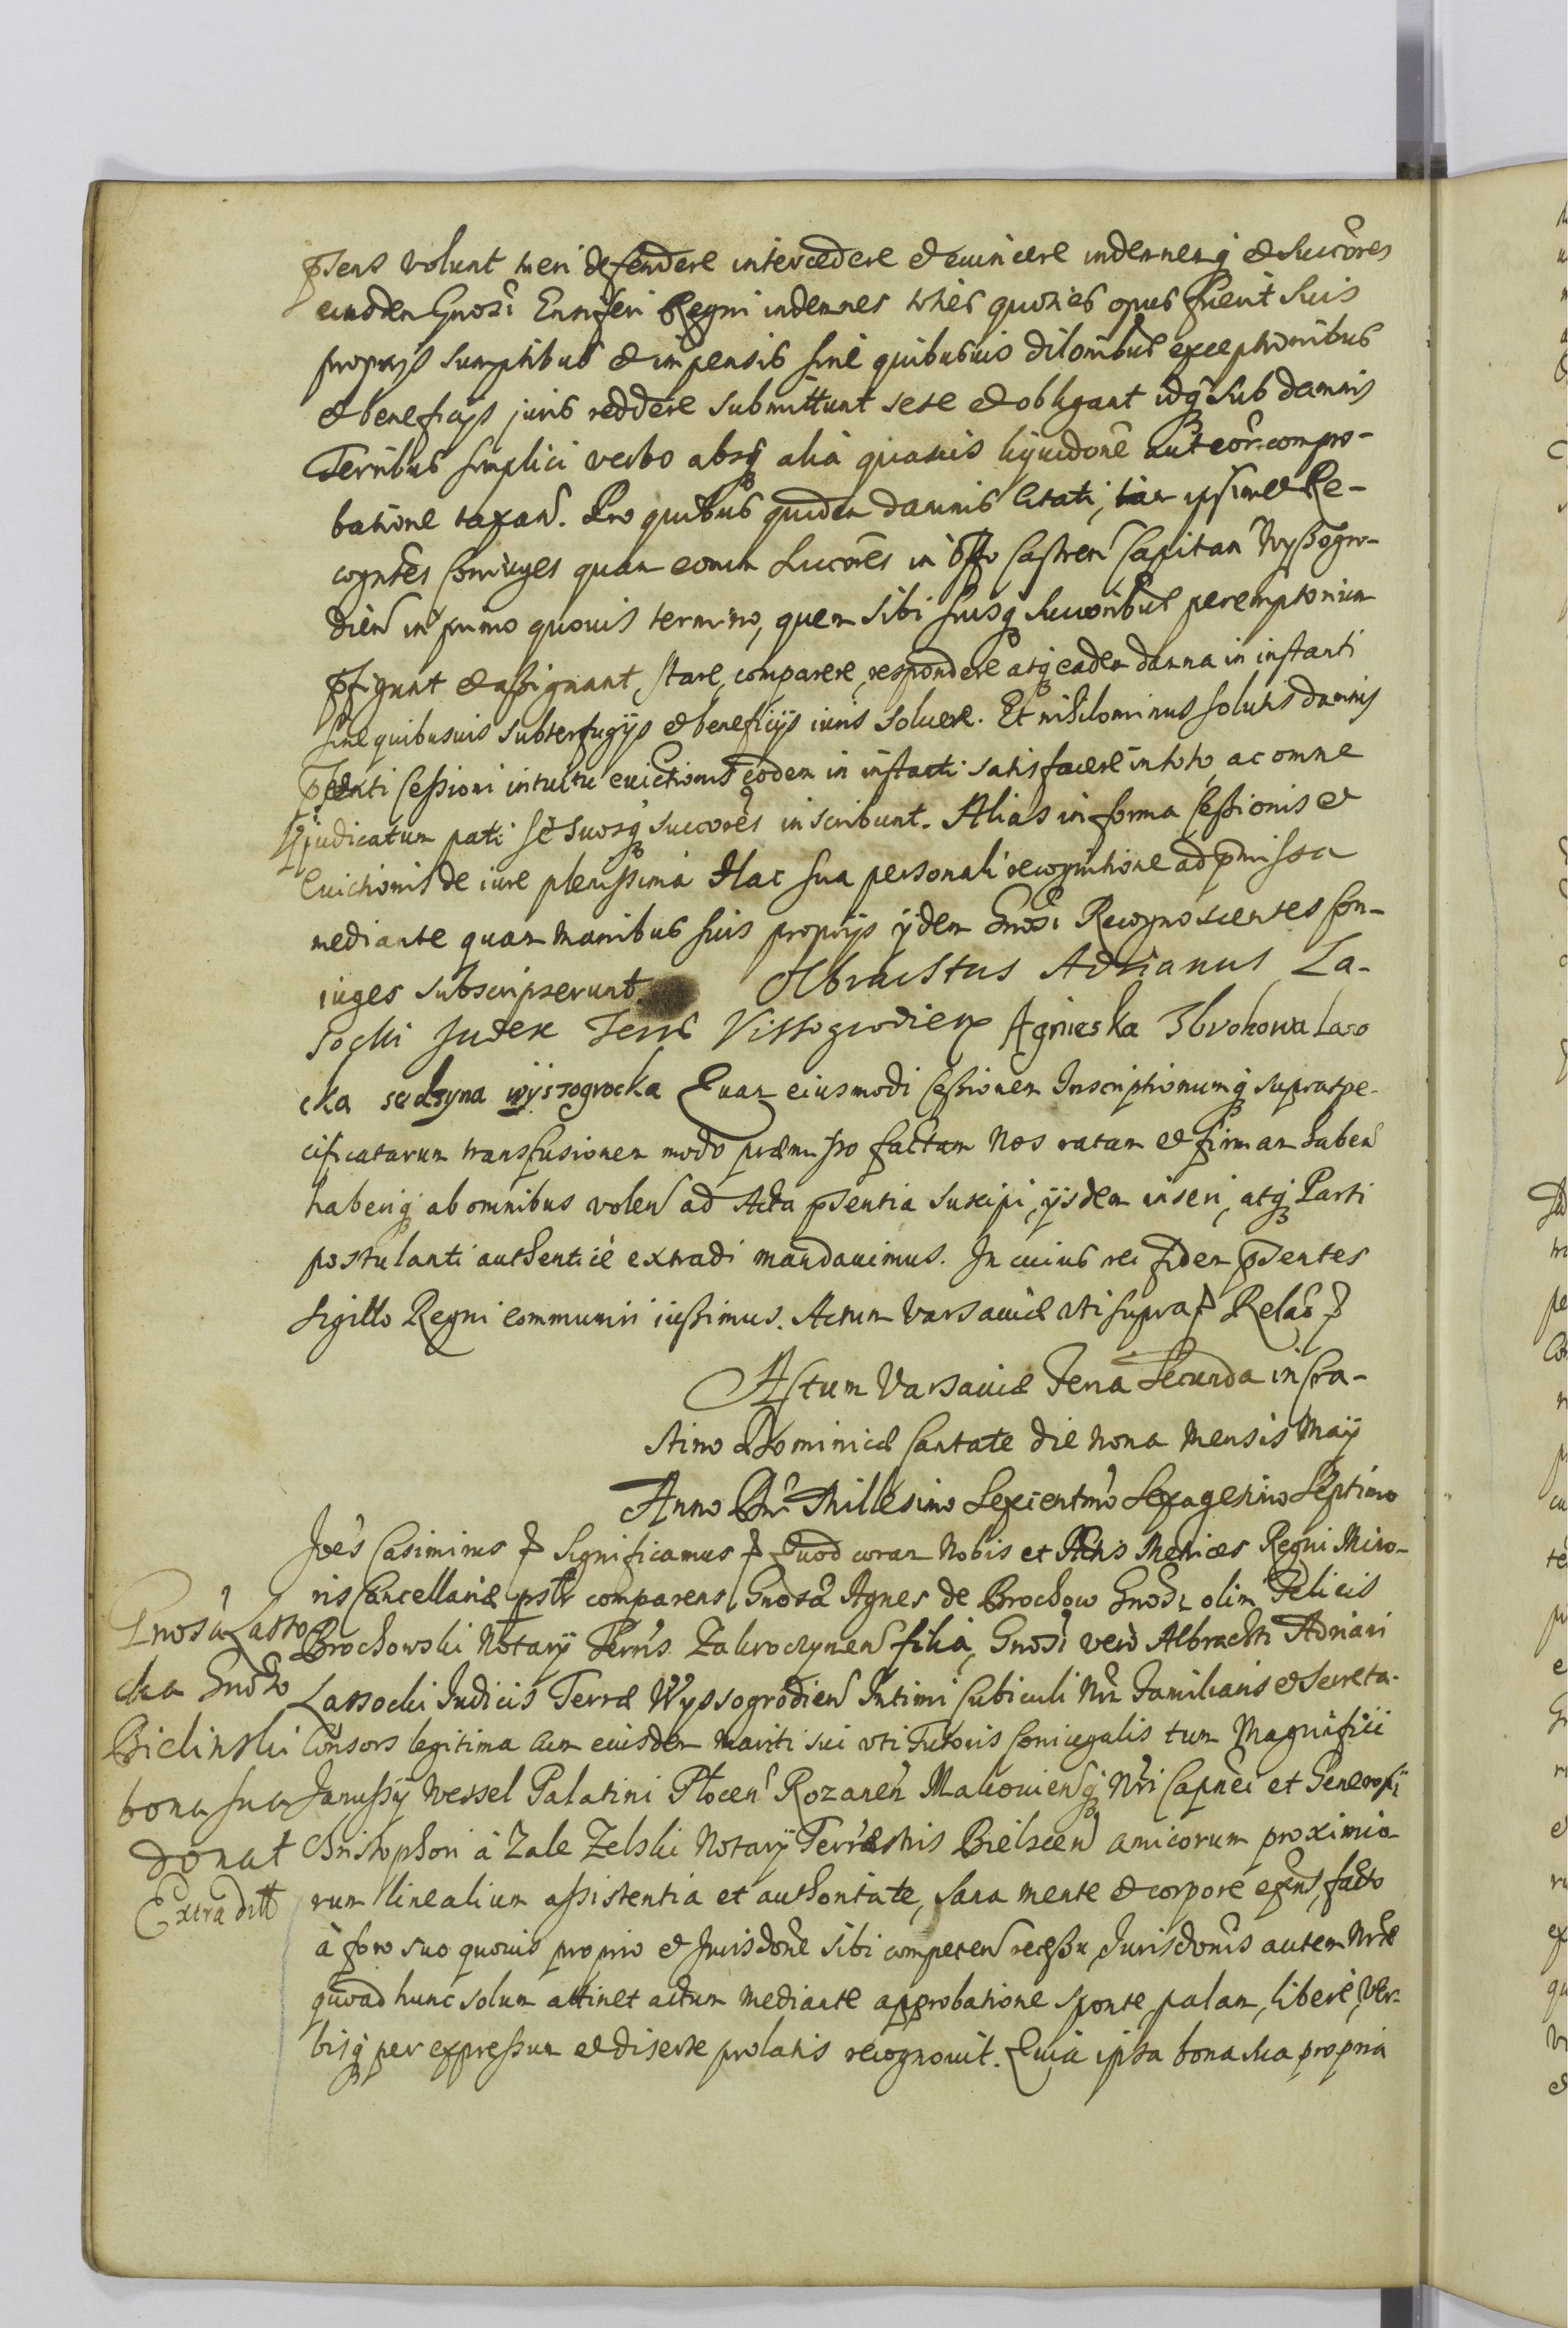 pñtens volunt tueri defendere intercedere et euincere indemnemq; et Succores
eiusdem Gnosi Ensiferi Regni indemnes toties quoties opus fuerit suis
proprijs sumptibus et impensis sine quibusuis dilonibus exceptionibus
et beneficijs juris reddere submittunt sese et obligant idq; sub damnis
Terribus simplici verbo absq; alia quauis liquidone aut eor. compro-
batione taxan. Pro quibus quidem damnis citati, tam ipsimet Re-
cogntes Coniuges quam eorum Succores in Offo Castren Capitan Wyssogro-
dien in primo quouis termino, quem sibi suisq; Succoribus peremptorium
pfigunt et assignant, stare, comparere, respondere atq; eadem damna in instanti
sine quibusuis subterfugijs et beneficijs iuris soluere. Et nihilominus solutis damnis
psenti Cessioni intuitu euictionis eodem in instanti satisfacere in toto, ac omne
judicatum pati se suosq; succores inscribunt. Alias in forma Cessionis et
Euictionis de iure plenissima Hac sua personali recognitione ad pmissa
mediante quam manibus suis proprijs ijdem Gnosi Recognoscentes Con-
iuges subscripserunt Olbrachtus Adrianus La-
socki Judex Terre Vissogrodien Agnieska Zbrohowa Laso
cka sedzyna wyssogrocka Quam eiusmodi Cessionem Inscriptionumq; supraspe-
cificatarum transfusionem modo præmisso factam Nos ratam et firmam haben
haberiq; ab omnibus volen ad Acta psentia suscipi, ijsdem inseri, atq; Parti
postulanti authenticè extradi mandauimus. In cuius rei fidem psentes
Sigillo Regni communiri iussimus. Actum Varsauiæ vti supra Relao
Actum Varsauiæ Feria Secunda in Cra-
stino Dominicæ Cantate die nona Mensis Maij
Anno Dni Millesimo Sexcentmo Sexagesimo Septimo
Joes Casimirus Significamus Quod coram Nobis et Actis Metrices Regni Mino-
ris Cancellariæ pstr comparens Gnosa Agnes de Brochow Gnosi olim Felicis
Brochowski Notarij Terris Zakroczymen filia, Gnosi vero Albrachti Adriani
Lassocki Iudicis Terræ Wyssogrodien Intimi Cubiculi Nri Familiaris et Secreta.
Consors legitima cum eiusdem mariti sui vti Tutoris Coniugalis tum Magnifici
Janussij Wessel Palatini Plocen Rozanen Makouiensq; Nri Capnei et Generosi
Christophori à Zale Zelski Notarij Terrestris Bielscen amicorum proximio-
rum linealium assistentia et authoritate, sana mente et corpore exns, facto
à foro suo quouis proprio et Jurisdone sibi competen recessu, Jurisdonis autem Nræ
quoad hunc solum attinet actum mediante approbatione sponte, palam, libere, ver-
bisq; per expressum et diserte prolatis recognouit. Quia ipsa bona sua propria
Gnosa Lasso
cka Gnoso
Bielinski
bona sua
donat
Extradtt